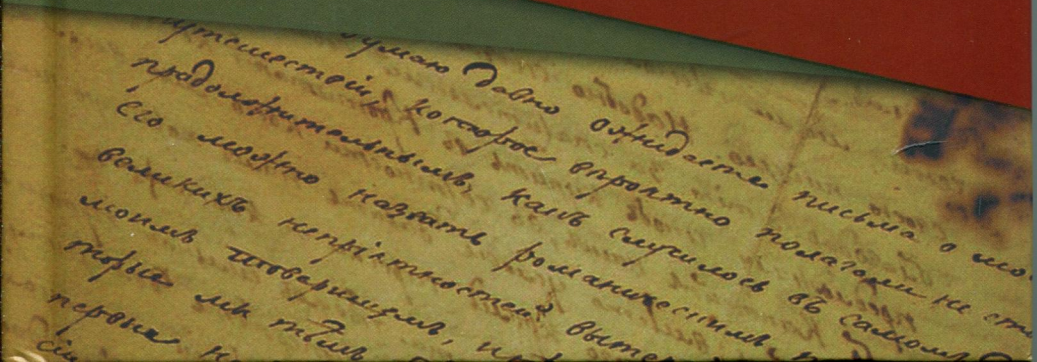 думаю давно ожидаете письма о мо
путешествіи, которое вѣроятно полагали не ст
продолжительнымъ, какъ случилось въ самомъ
Его можно назвать романическимъ
великихъ непріятностей вытер
моимъ товарищамъ,
торые мы
первыя